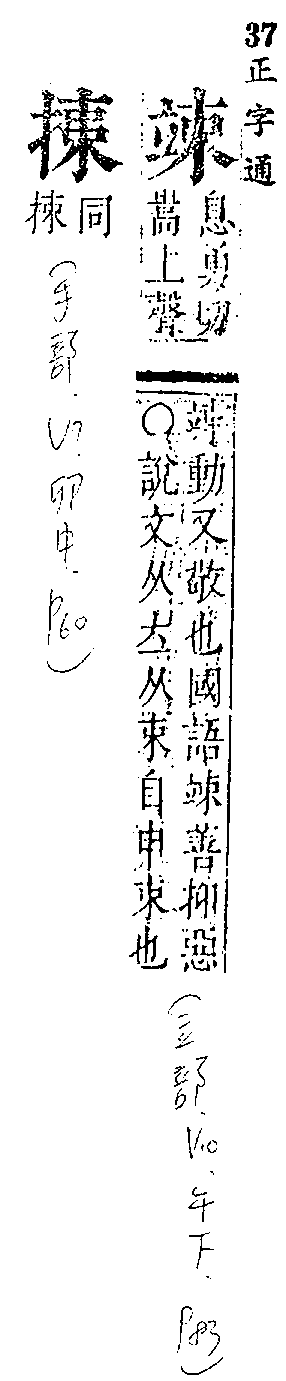 37
正字通
竦
息勇切
嵩上聲
竦動又敬也國語竦善抑惡
○說文从立从束自申束也
(立部.V10.午下.P83)
㨂
同
捒
(手部.V7.卯中.P60)